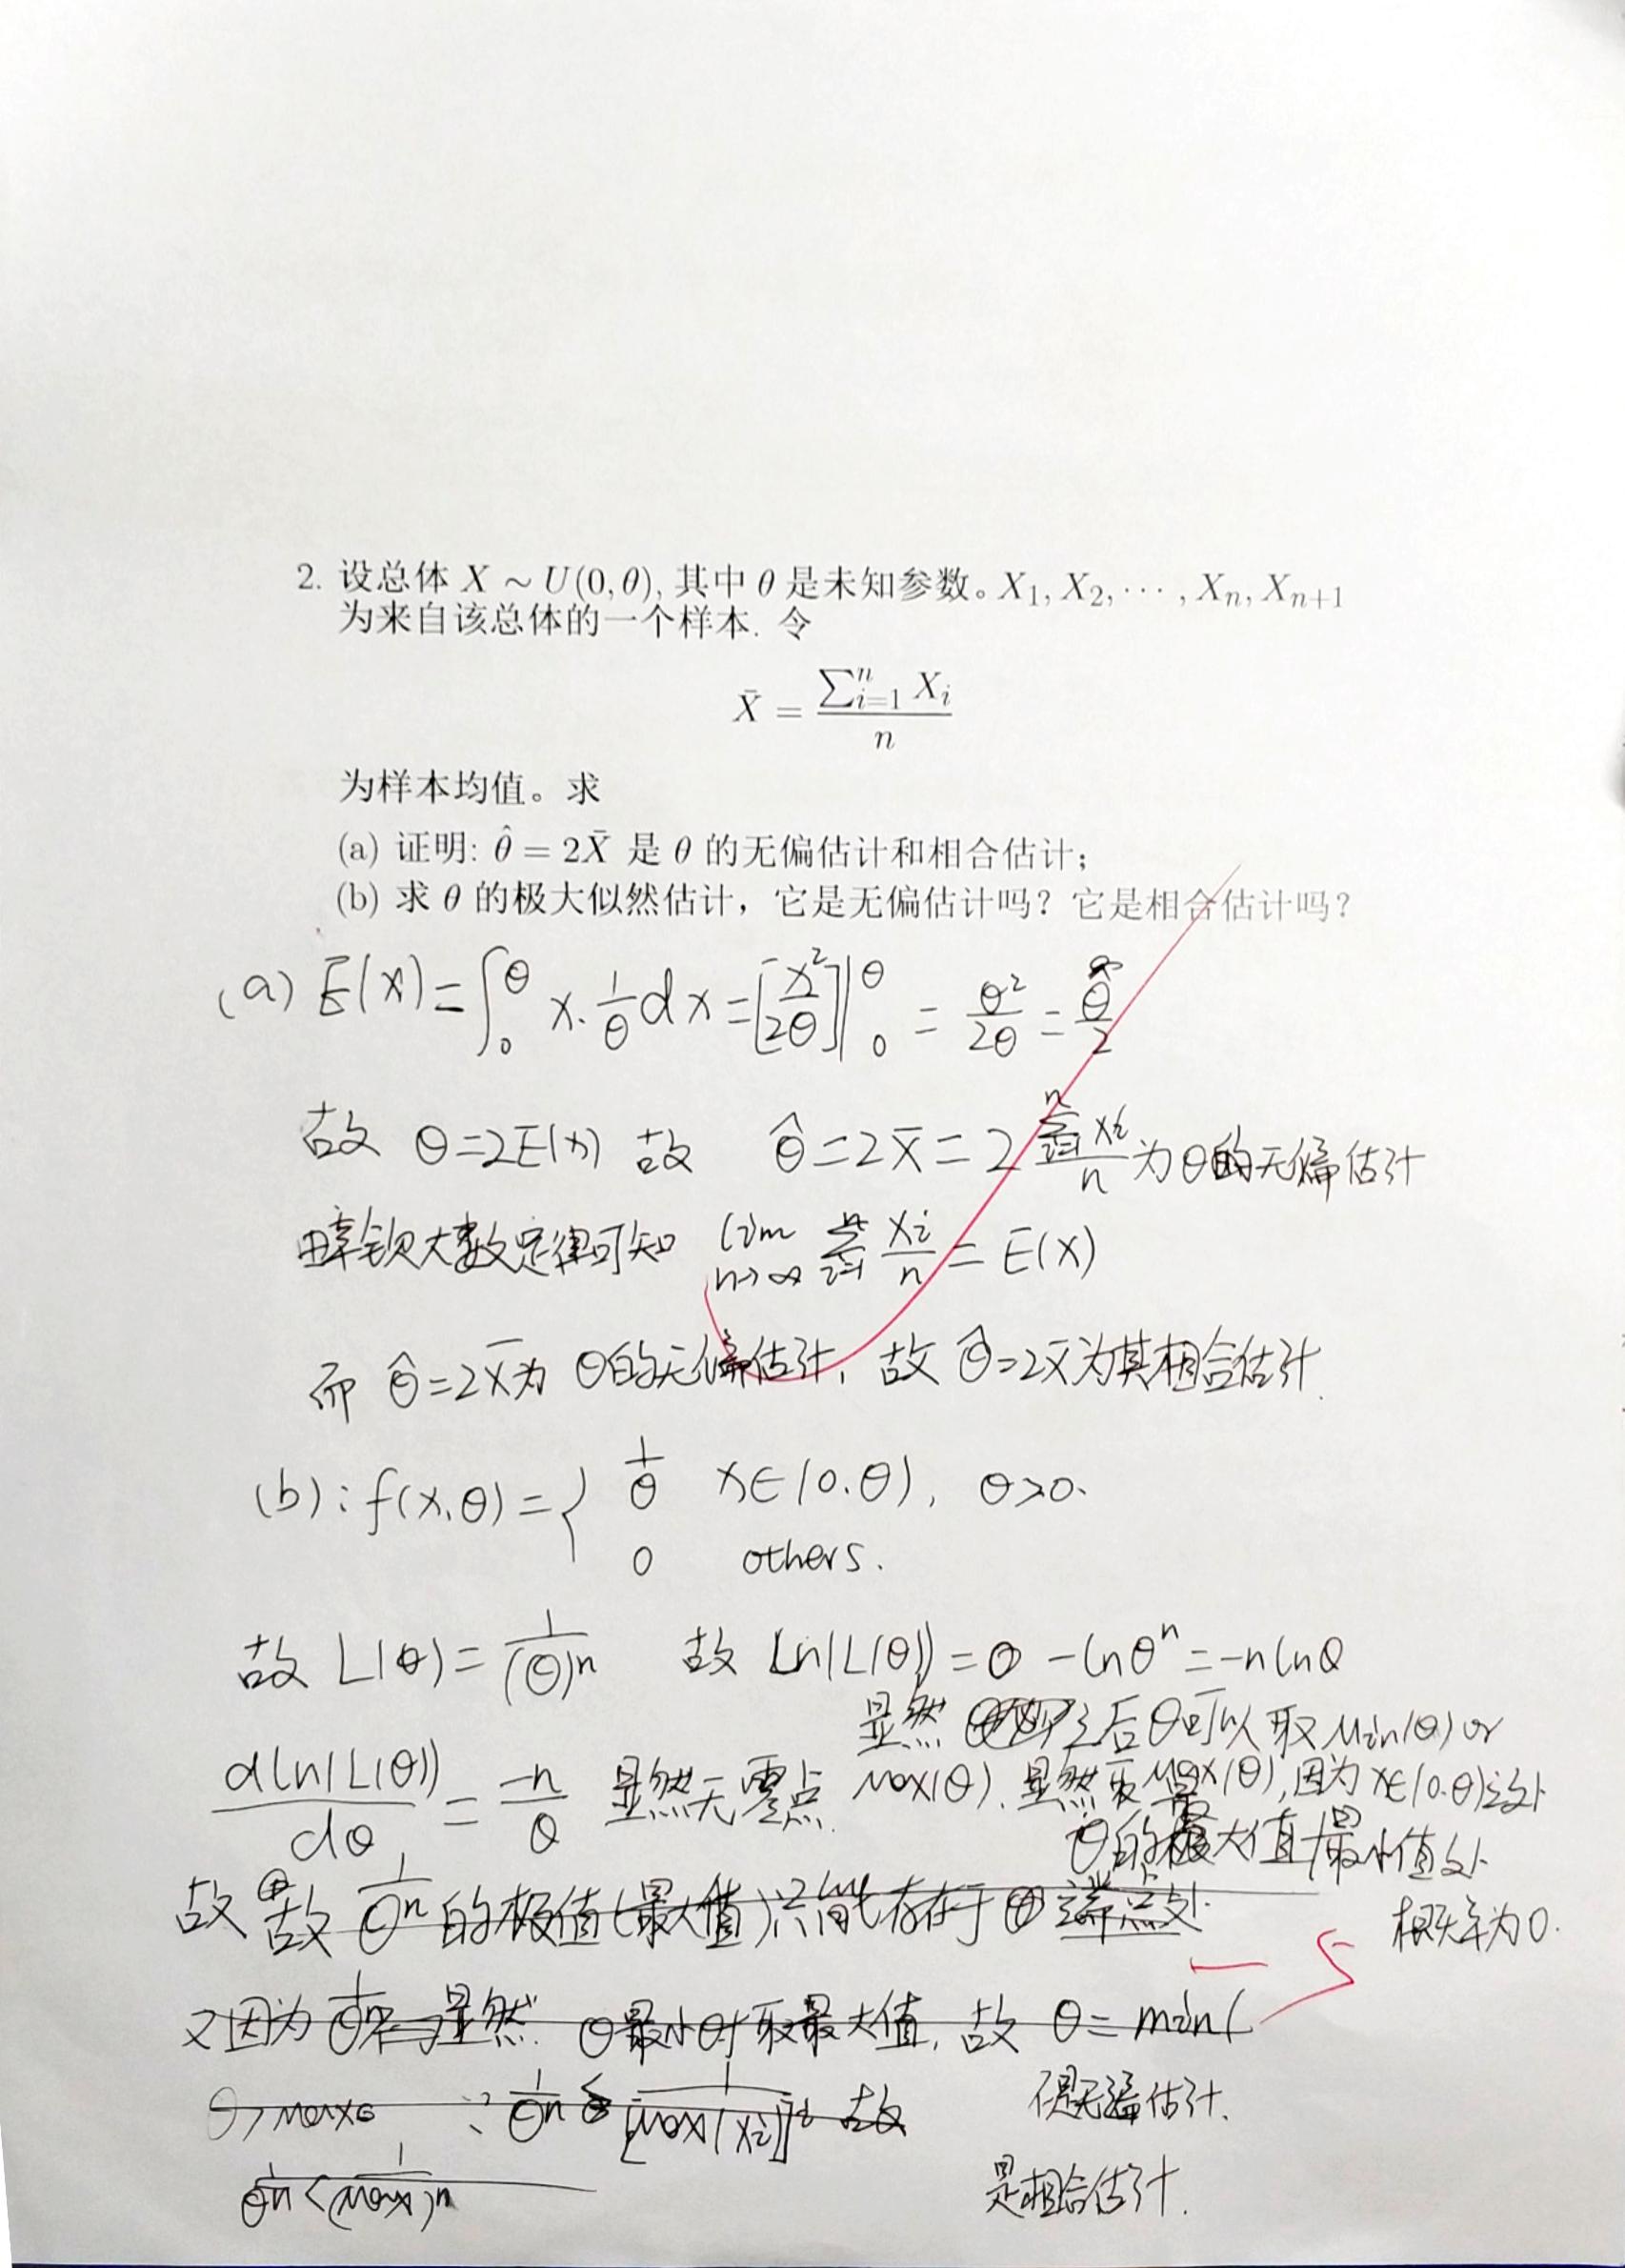 2. 设总体 X ∼ U(0, θ), 其中 θ 是未知参数。X₁, X₂, ⋯ , Xₙ, Xₙ₊₁
为来自该总体的一个样本. 令
X̄ = ∑ⁿᵢ₌₁ Xᵢ / n
为样本均值。求
(a) 证明: θ̂ = 2X̄ 是 θ 的无偏估计和相合估计;
(b) 求 θ 的极大似然估计，它是无偏估计吗？它是相合估计吗？
(a) E(x) = ∫₀^θ x·1/θ dx = [x²/2θ]|₀^θ = θ²/2θ = θ̂/2
故 θ=2E(x) 故 θ̂=2x̄=2 ∑ⁿᵢ₌₁ xᵢ/n 为θ的无偏估计
由辛钦大数定律可知 lim n→∞ ∑ⁿᵢ₌₁ xᵢ/n = E(x)
而 θ̂=2x̄为 θ的无偏估计, 故 θ̂=2x̄为其相合估计.
(b): f(x,θ) = { 1/θ x∈(0.θ), θ>0.
0 others.
故 L(θ) = 1/(θ)ⁿ 故 ln(L(θ)) = 0 - lnθⁿ = -nlnθ
d ln(L(θ))/dθ = -n/θ 显然无零点.
显然 之后θ可以取 Min(θ) or
Max(θ). 显然取 Max(θ), 因为 x∈(0.θ)之外
θ的最大值 最小值处
概率为0.
故 故 1/θⁿ 的极值(最大值)只能存在于 端点处.
又因为 1/θⁿ 显然 θ最小时取最大值, 故 θ = min(
-5
θ>max ∵ 1/θⁿ ≤ 1/[Max(xᵢ)] 故
1/θⁿ < 1/(Max)ⁿ
无偏估计.
是相合估计.